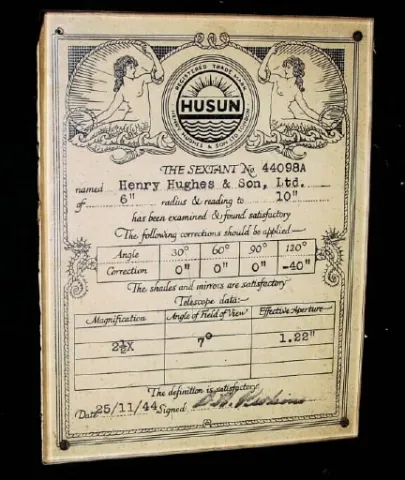 REGISTERED TRADE MARK
HUSUN
HENRY HUGHES & SON LTD LONDON
THE SEXTANT No 44098A
named Henry Hughes & Son, Ltd.
of 6" radius & reading to 10"
has been examined & found satisfactory
The following corrections should be applied
Angle 30° 60° 90° 120°
Correction 0" 0" 0" -40"
The shades and mirrors are satisfactory
Telescope data:-
Magnification Angle of Field of View Effective Aperture
2½X 7° 1.22"
The definition is satisfactory
Date 25/11/44 Signed